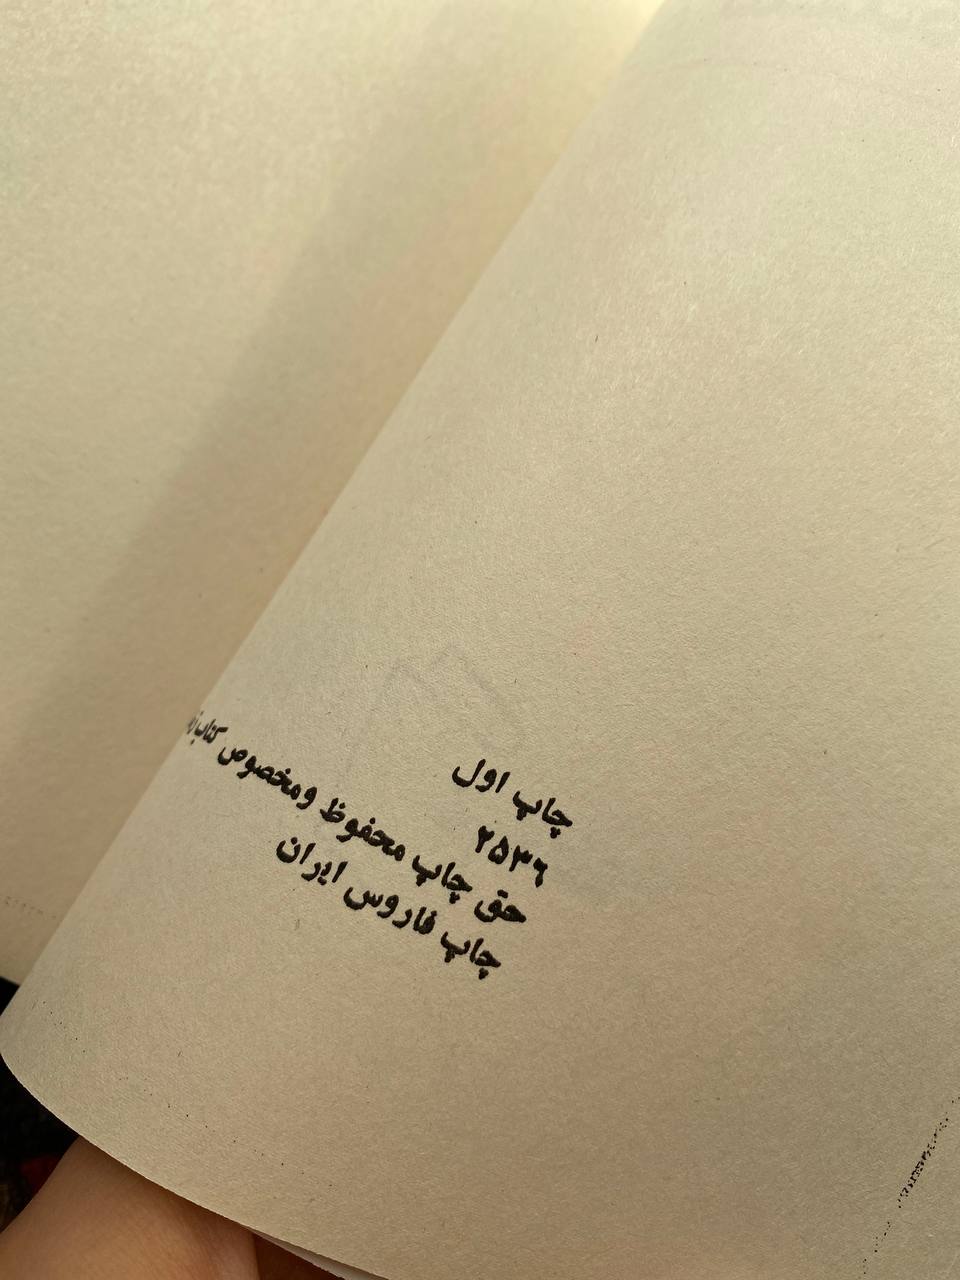 چاپ اول
۲۵۳۶
حق چاپ محفوظ ومخصوص کتاب
چاپ فاروس ایران